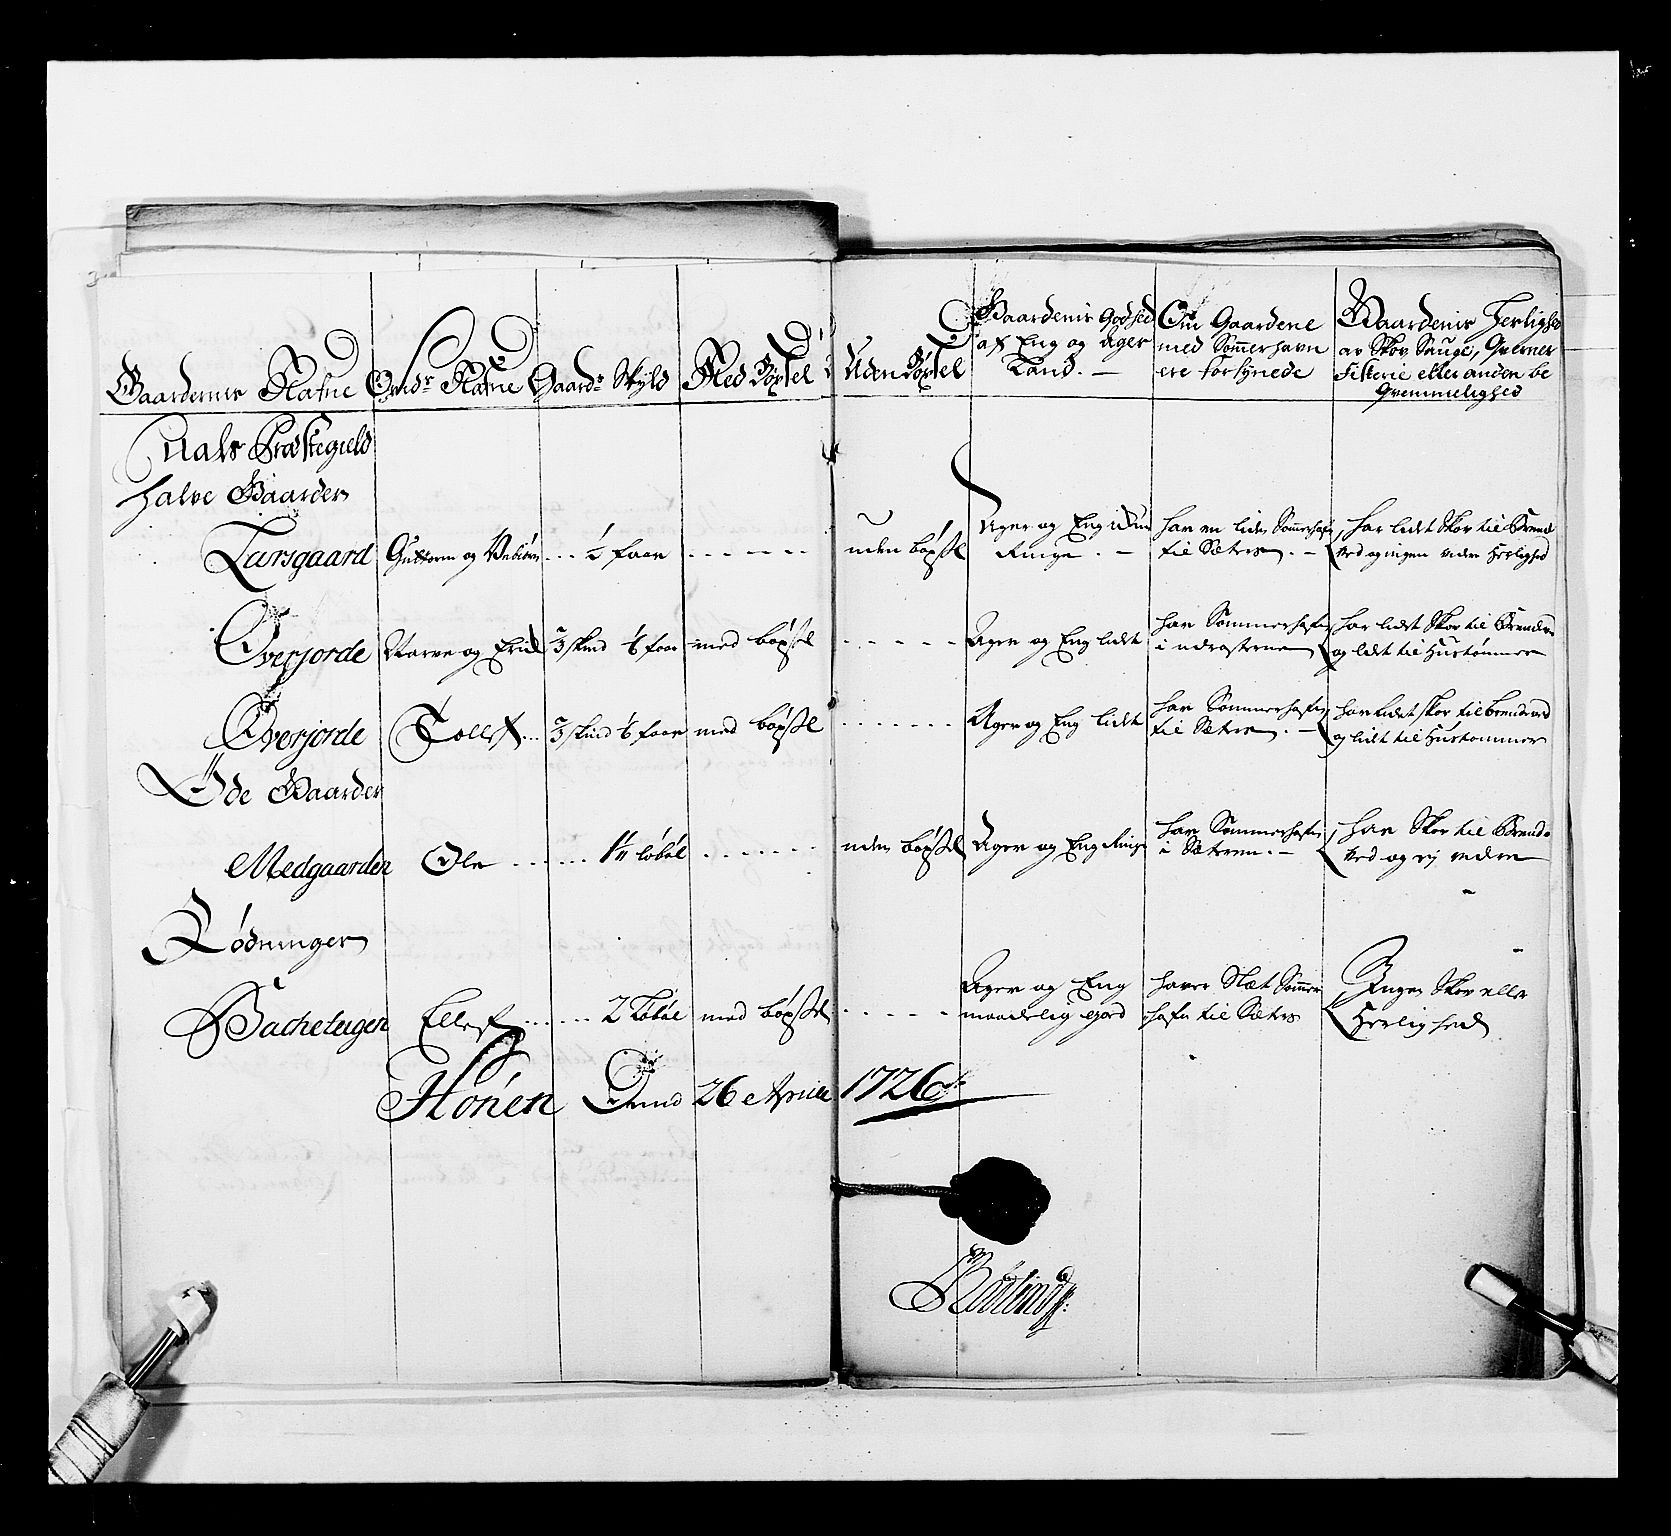 Gaardernis Nafne | Opsid.s Nafne | Gaard.s Skyld | Med Böxsel | Uden Böxsel | Gaardenis Godhed af Eng og Ager Land. — | Om Gaardene med Sommerhavn ere forsynede | Gaardenis Herlighed av Skov Sauge, Qverner Fiskerie eller anden be Qvemmelighed
Aals Præstegield
Halve Gaarder
Tursgaard | Guttorm og | ½ faar | uden böxsel | Ager og Eng ikun Ringe. — | har en liden Sommerhafn til Sætres. — | har lidt Skov til Brend Ved og ingen viidere Herlighed
Överjorde | Narve og Erich | 3 skind ⅙ faar | med böxsel | Ager og Eng lidt | har Sommerhafn i udrasterne | har lidet Skov til Brendeved og lidt til Hustömmer
Överjorde | Tollef | 3 skind ⅙ faar | med böxsel | Ager og Eng lidt | har Sommerhafn til Sætres. — | har lidet skov til brendeved og lidt til Hustömmer
Öde Gaarder
Medgaarden | Ole | löböl | uden böxsel | Ager og Eng Ringe | har Sommerhafn i Sæteren. — | har Skov til Brende Ved og ej videre
Rödninger
Bacheteigen | Ellef | 2 Löböl | med böxsel | Ager og Eng maadelig gord | haver Slæt Sommer hafn til Sætres | Ingen Skov eller Herlighed
Hönen Dend 26 Aprill 1726